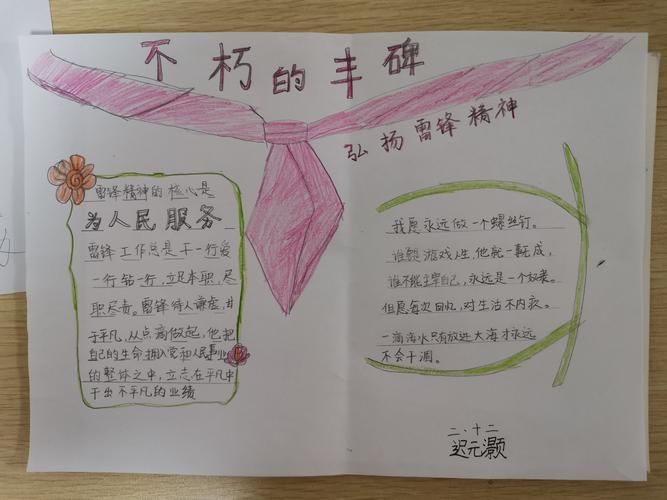 不朽的丰碑
弘扬雷锋精神
雷锋精神的核心是
为人民服务
雷锋工作总是干一行爱
一行钻一行,立足本职,尽
职尽责。雷锋待人谦虚,甘
于平凡,从点滴做起,他把
自己的生命拥入党和人民事业
的整体之中,立志在平凡中
干出不平凡的业绩
我愿永远做一个螺丝钉。
谁游戏人生,他就一事无成,
谁不能主宰自己,永远是一个奴隶。
但愿每次回忆,对生活不内疚。
一滴海水只有放进大海才永远
不会干涸。
二、十二
迟元灏